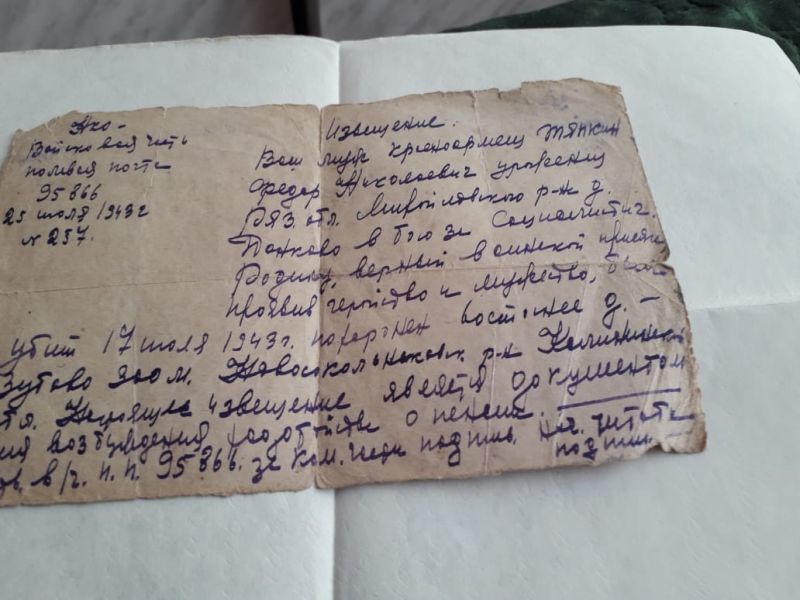 Нко-
Войсковая часть
полевая почта
95866
25 июля 1943 г
N 257.
Извещение.
Ваш муж красноармеец Тяпкин
Федор Николаевич уроженец
Ряз. обл. р-на д.
Панково в бою за Социалистич.
Родину, верный воинской присяге
проявив геройство и мужество, был
убит 17 июля 1943 г. похоронен восточнее д. -
Зутово 300 м. р-н Калининской
Настоящее извещение является документом
возбуждения ходотайства о пенсии.
в/ч. п.п. 95866. за ком. части подпись. нач. штаба
подпись